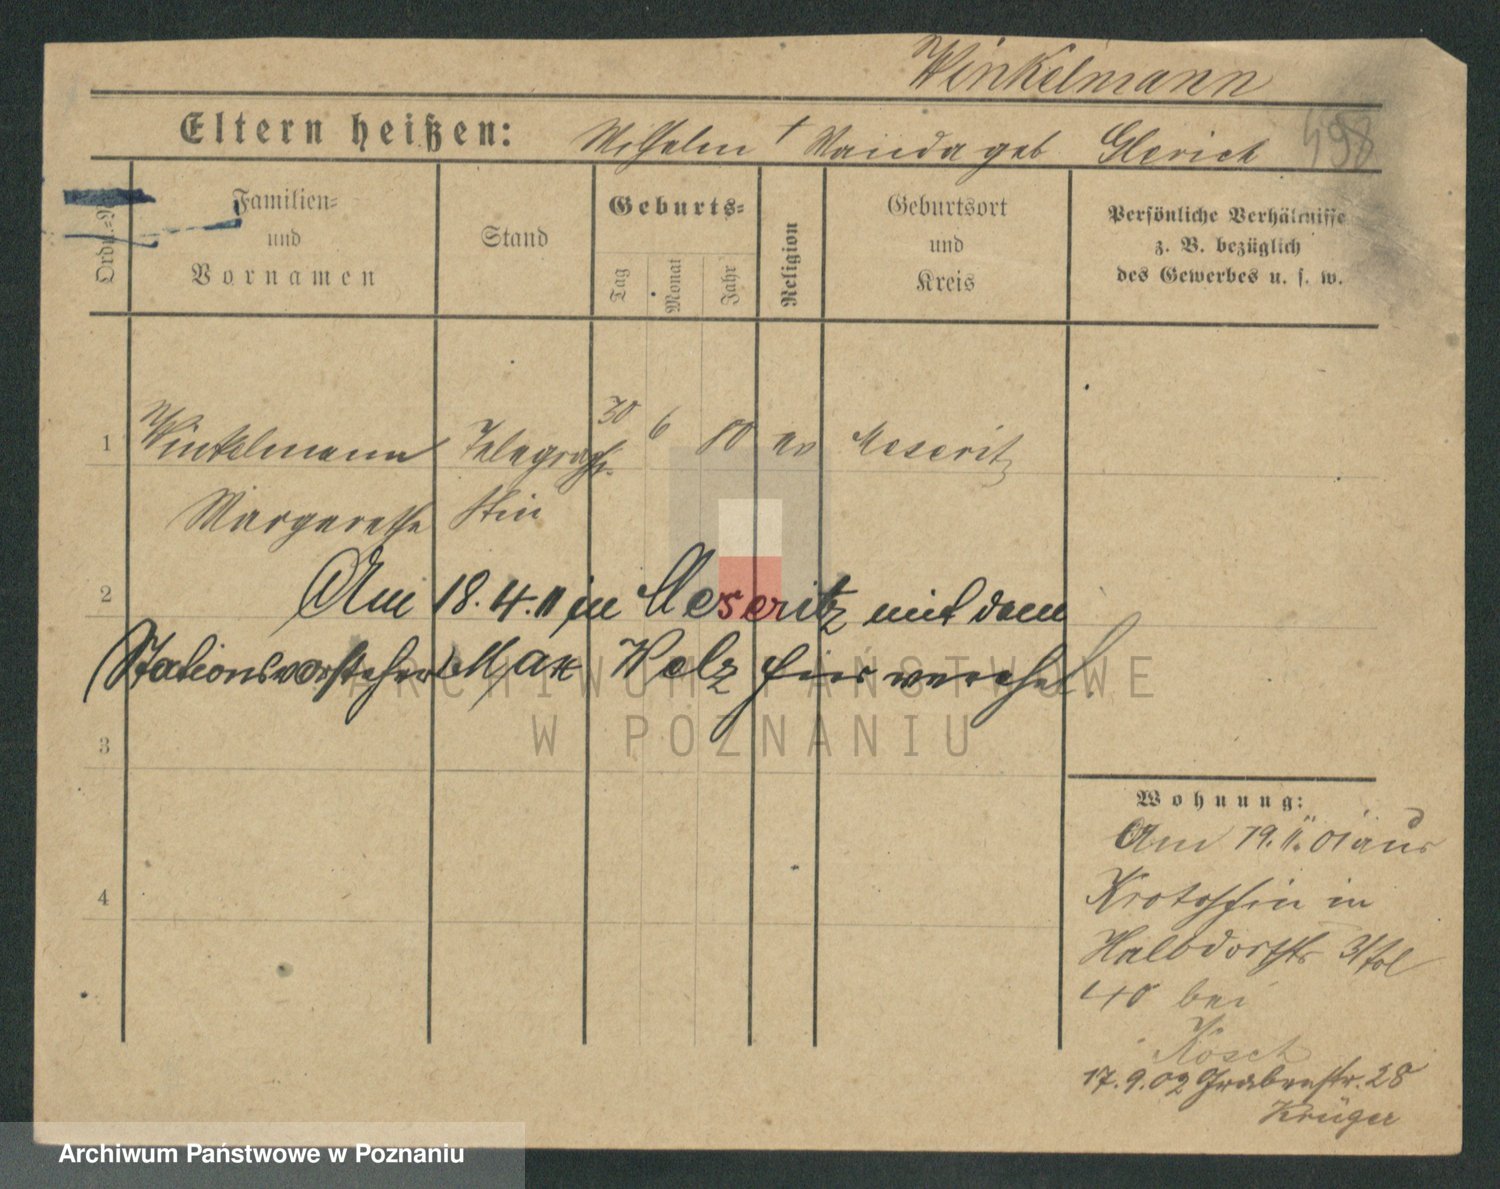 Winkelmann
Eltern heißen: Wilhelm † Wanda geb Glerich
498
Ordn.-N
Familien=
und
Vornamen
Stand
Geburts=
Tag
Monat
Jahr
Religion
Geburtsort
und
Kreis
Persönliche Verhältnisse
z. B. bezüglich
des Gewerbes u. s. w.
1 Winkelmann Telegraph. 30 6 80 ev Meseritz
Margarethe stin
2 Am 18.4.11 in Meseritz mit dem
Stationsvorsteher Max Welz hier verehel.
3
4
Wohnung:
Am 19.11.01 aus
Krotoschin in
Halbdorfstr 31
40 bei
Kösch
17.9.02 Grabenstr. 28
Krüger
ARCHIWUM PAŃSTWOWE
W POZNANIU
Archiwum Państwowe w Poznaniu